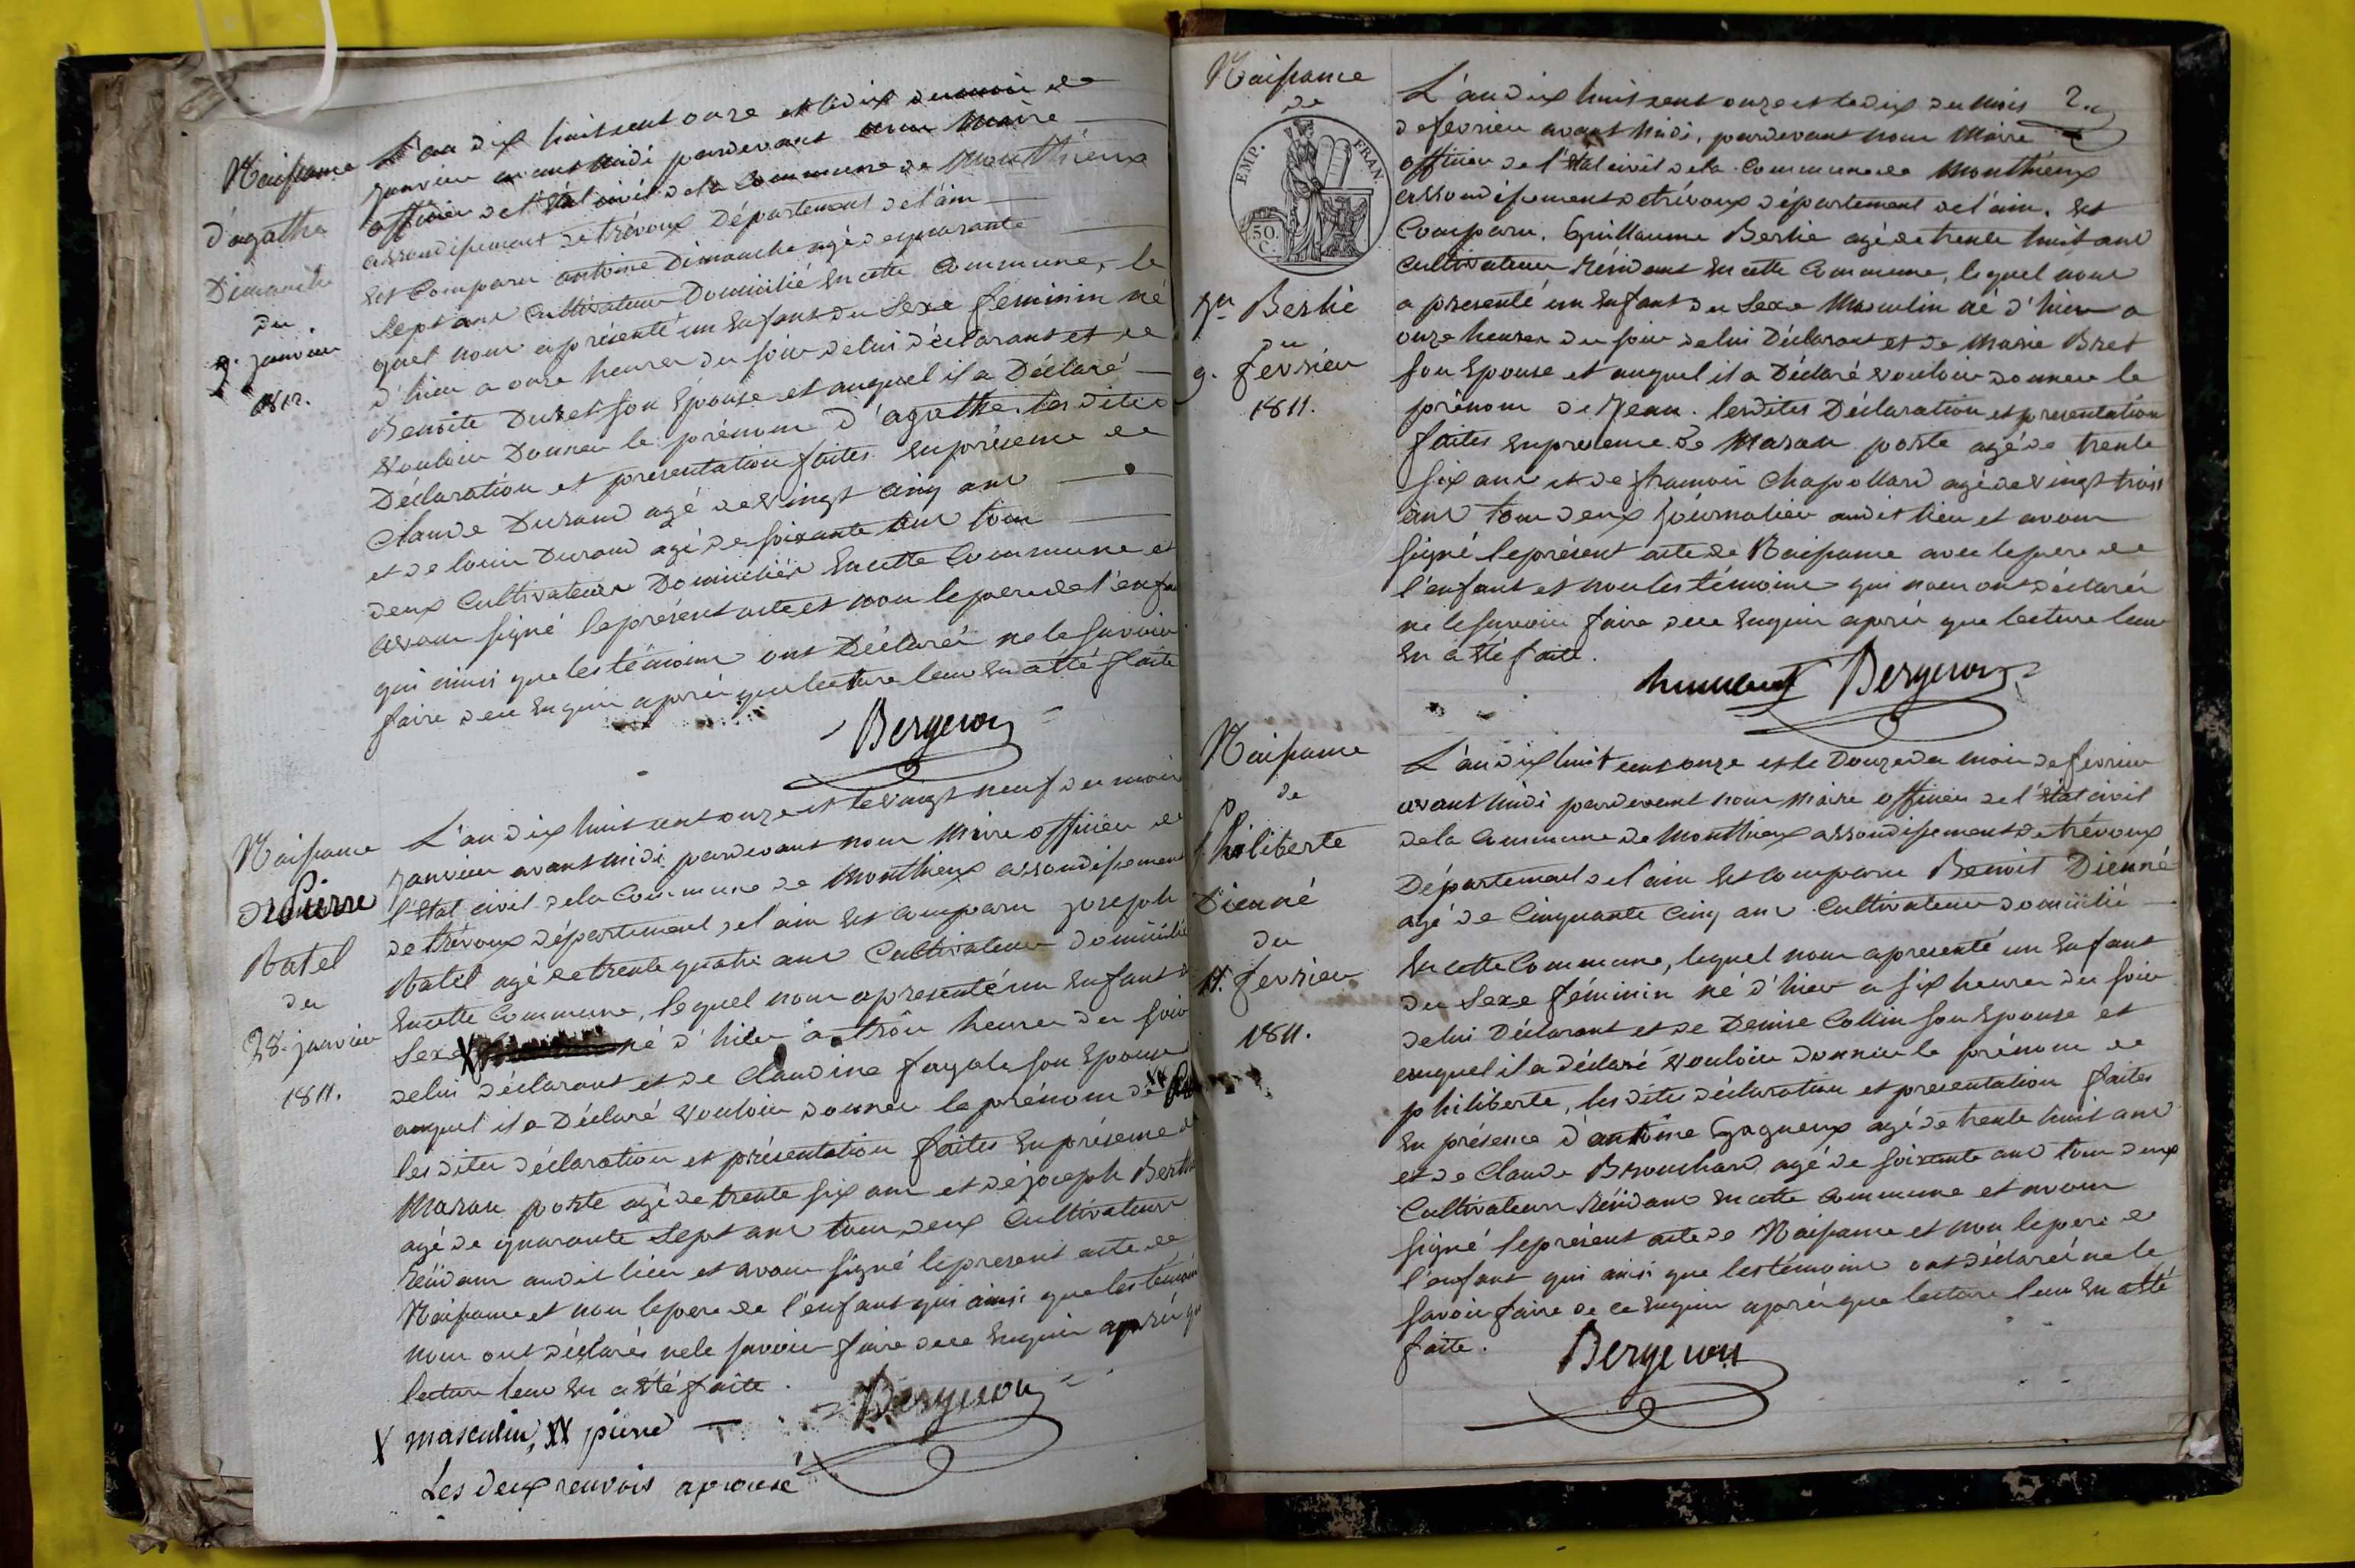 Naissance
d'agathe
Dimanche
du
9. janvier
1811.
L'an dix huit cent onze et le dix du mois de
janvier avant midi pardevant nous Maire
officier de l'état civil de la Commune de Monthieux
arrondissement de trévoux Département de l'ain
Est Comparu antoine Dimanche agé de quarante
sept ans Cultivateur Domicilié en cette Commune, le
quel nous a présenté un Enfant du Sexe feminin né
d'hier a onze heures du soir de lui déclarant et de
Benoite Duret son Epouse et auquel il a Déclaré
vouloir Donner le prénom d'agathe. les dites
Déclaration et presentation faites en présence de
Claude Durand agé de vingt cinq ans
et de louis Durand agé de soixante ans tous
deux Cultivateurs Domiciliés en cette Commune et
avons signé le présent acte et non le pere de l'enfant
qui ainsi que les témoins ont Déclarés ne le savoir
faire de ce enquis après que lecture leur en a été faite
Bergeron
Naissance
de Pierre
Ratel
du
28. janvier
1811.
L'an dix huit cent onze et le vingt neuf du mois
janvier avant midi pardevant nous Maire officier de
l'Etat civil de la Commune de Monthieux arrondissement
de trévoux département de l'ain Est Comparu joseph
Ratel agé de trente quatre ans Cultivateur domicilié
en cette Commune, lequel nous a presenté un Enfant du
Sexe X né d'hier a trois heures du soir
de lui déclarant et de Claudine fayale son Epouse
auquel il a Déclaré vouloir donner le prénom de XX
les dites déclaration et présentation faites en présence de
Mazan poste agé de trente six ans et de joseph
agé de quarante sept ans tous deux Cultivateurs
résidans au dit lieu et avons signé le present acte de
Naissance et non le pere de l'enfant qui ainsi que les témoins
nous ont déclarés ne le savoir faire de ce enquis après que
lecture leur en a été faite.
Bergeron
X masculin, XX pierre
Les deux renvois aprouvé
2.
Naissance
de
EMP. FRAN.
50. C.
Jn Berlié
du
9. fevrier
1811.
L'an dix huit cent onze et le dix du mois
de fevrier avant midi, pardevant nous Maire
officier de l'Etat civil de la Commune de Monthieux
arrondissement de trévoux département de l'ain. Est
Comparu. Guillaume Berlié agé de trente huit ans
Cultivateur résidant en cette Commune, lequel nous
a presenté un Enfant du Sexe Masculin né d'hier a
onze heures du soir de lui Déclarant et de Marie Bret
son Epouse et auquel il a Déclaré vouloir donner le
prénom de Jean. les dites Déclaration et presentation
faites en presence de Mazan poste agé de trente
six ans et de françois Chapollard agé de vingt trois
ans tous deux journalier au dit lieu et avons
signé le présent acte de Naissance avec le pere de
l'enfant et non les témoins qui nous ont déclarés
ne le savoir faire de ce enquis après que lecture leur
en a été faite.
Bergeron
Naissance
de
Philiberte
Dienné
du
11. fevrier
1811.
L'an dix huit cent onze et le Douze du mois de fevrier
avant midi pardevant nous Maire officier de l'état civil
de la Commune de Monthieux arrondissement de trévoux
Département de l'ain Est Comparu Benoit Dienné
agé de Cinquante Cinq ans Cultivateur domicilié
en cette Commune, lequel nous a presenté un Enfant
du Sexe féminin né d'hier a six heures du soir
de lui Déclarant et de Denise Collin son Epouse et
auquel il a déclaré vouloir donner le prénom de
philiberte, les dites déclaration et presentation faites
en présence d'antoine Gagneux agé de trente huit ans
et de Claude Brouchard agé de soixante ans tous deux
Cultivateurs résidans en cette Commune et avons
signé le présent acte de Naissance et non le pere de
l'enfant qui ainsi que les témoins ont déclarés ne le
savoir faire de ce enquis après que lecture leur en a été
faite.
Bergeron